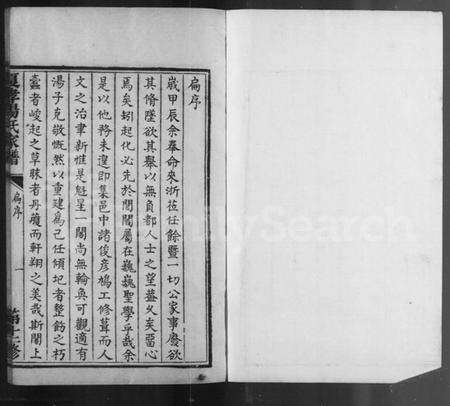 扁序
歲甲辰余奉命來浙莅任餘暨一切公家事廢欲
其脩墜欲其舉以無負都人士之望葢乆矣惡心
焉矣矧起化必先於閭閻屬在巍巍聖學乎哉余
是以他務未遑即集邑中諸俊彥鳩工修葺而人
文之治聿新惟是魁星一閣尚無輪奐可觀適有
湯子克敬慨然以重建爲己任傾圮者整飭之朽
蠹者峻起之草昧者丹雘而軒翔之美哉斯閣上
湯氏家譜
扁序
一
FamilySearch